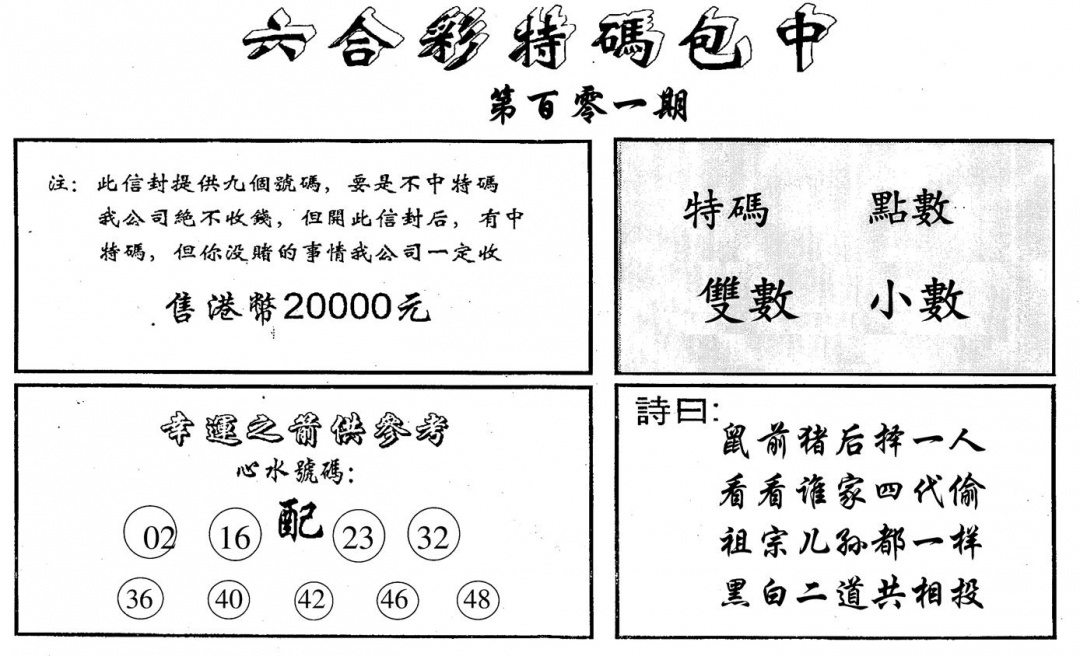 六合彩特碼包中
第百零一期
注：此信封提供九個號碼，要是不中特碼
我公司絕不收錢，但開此信封后，有中
特碼，但你没賭的事情我公司一定收
售港幣20000元
特碼 點數
雙數 小數
幸運之箭供參考
心水號碼：
02 16 配 23 32
36 40 42 46 48
詩曰：
鼠前猪后择一人
看看谁家四代偷
祖宗儿孙都一样
黑白二道共相投